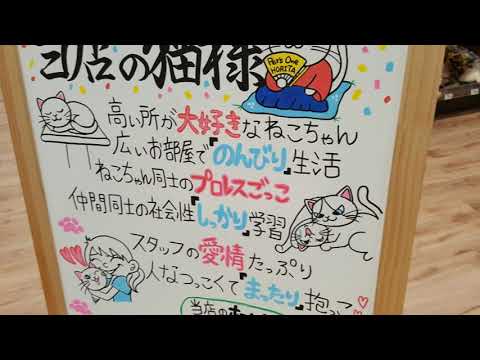 当店の猫様
Pet's One
HORITA
高い所が大好きなねこちゃん
広いお部屋で『のんびり』生活
ねこちゃん同士のプロレスごっこ
仲間同士の社会性『しっかり』学習
スタッフの愛情たっぷり
人なつっこくて『まったり』抱っこ
当店の